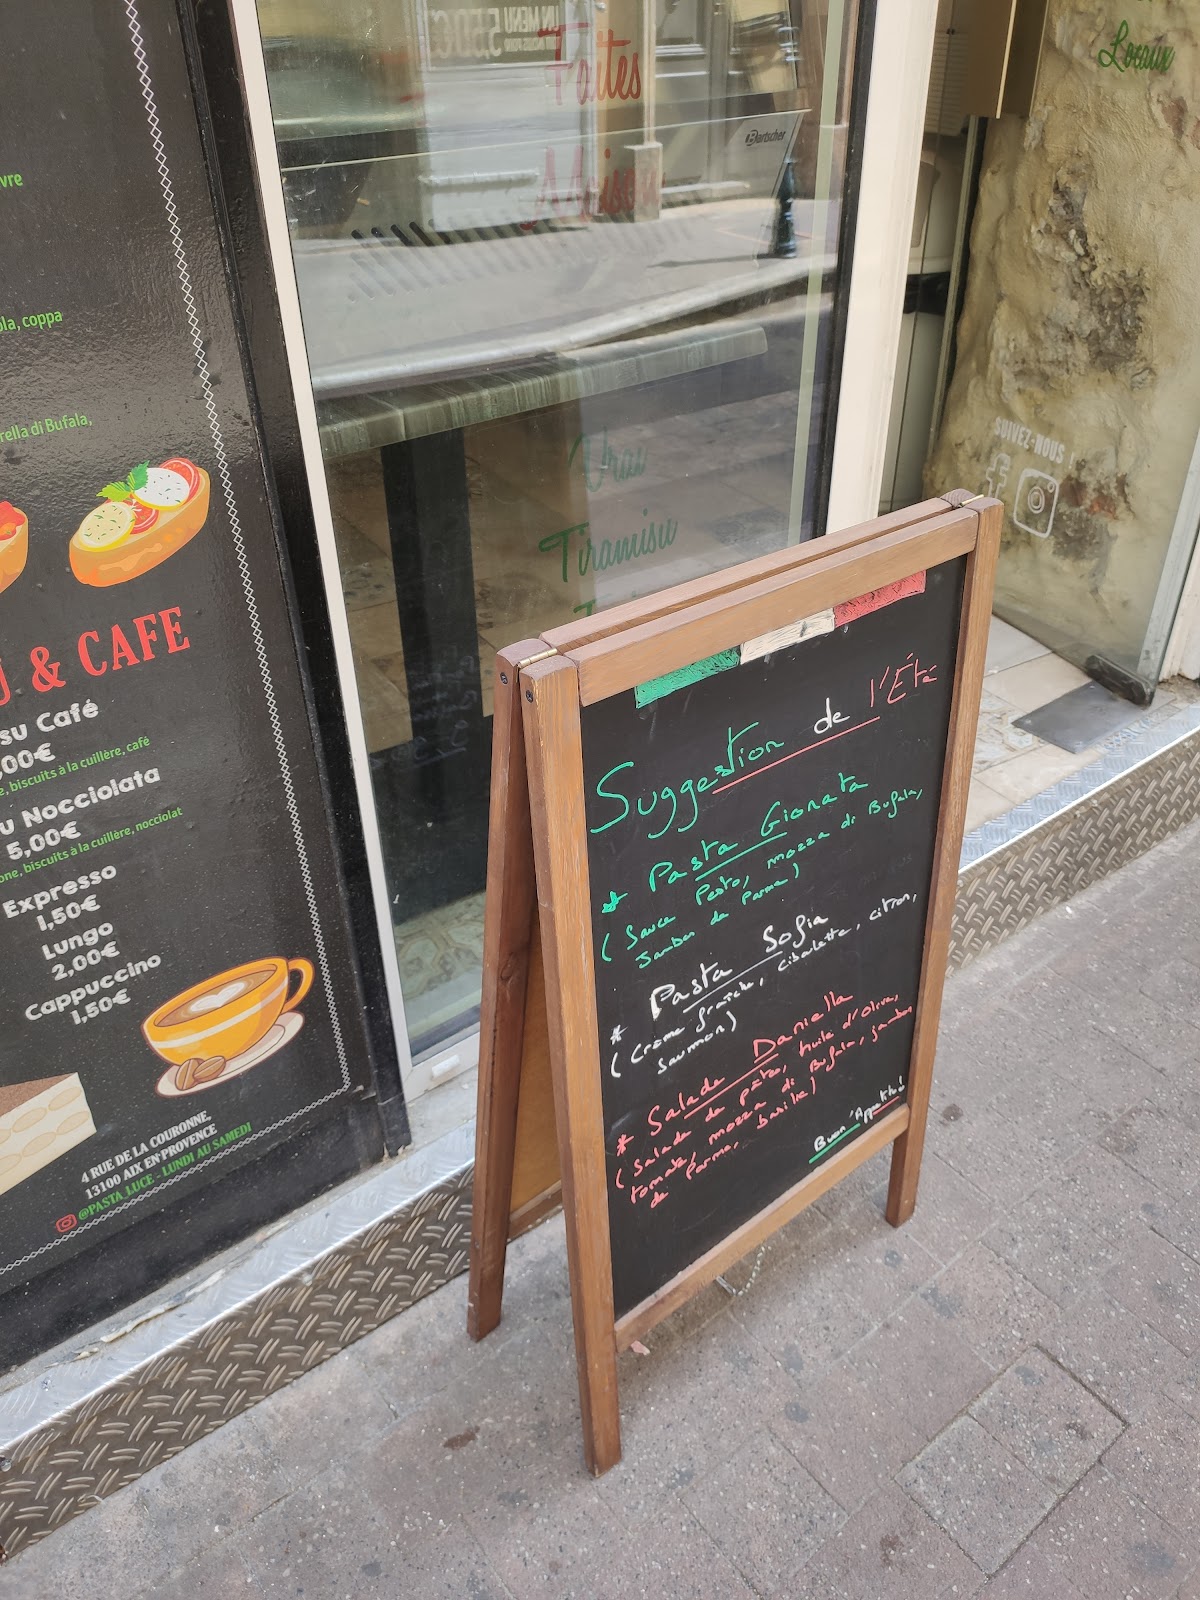 vre
ola, coppa
rella di Bufala,
& CAFE
su Café
,00€
e, biscuits à la cuillère, café
u Nocciolata
5,00€
one, biscuits à la cuillère, nocciolat
Expresso
1,50€
Lungo
2,00€
Cappuccino
1,50€
4 RUE DE LA COURONNE,
13100 AIX EN PROVENCE
@PASTA_LUCE - LUNDI AU SAMEDI
UN MENU
Faites
Maison
Bartscher
Vrai
Tiramisu
Locaux
SUIVEZ-NOUS !
Suggestion de l'Été
* Pasta Gionata
(Sauce Pesto, mozza di Bufala,
Jambon de Parme)
* Pasta Sofia
(Crème fraîche, ciboulette, citron,
saumon)
* Salade Daniella
(Salade de pâtes, huile d'Olive,
tomate, mozza di Bufala, jambon
de Parme, basilic)
Buon 'Appetito!